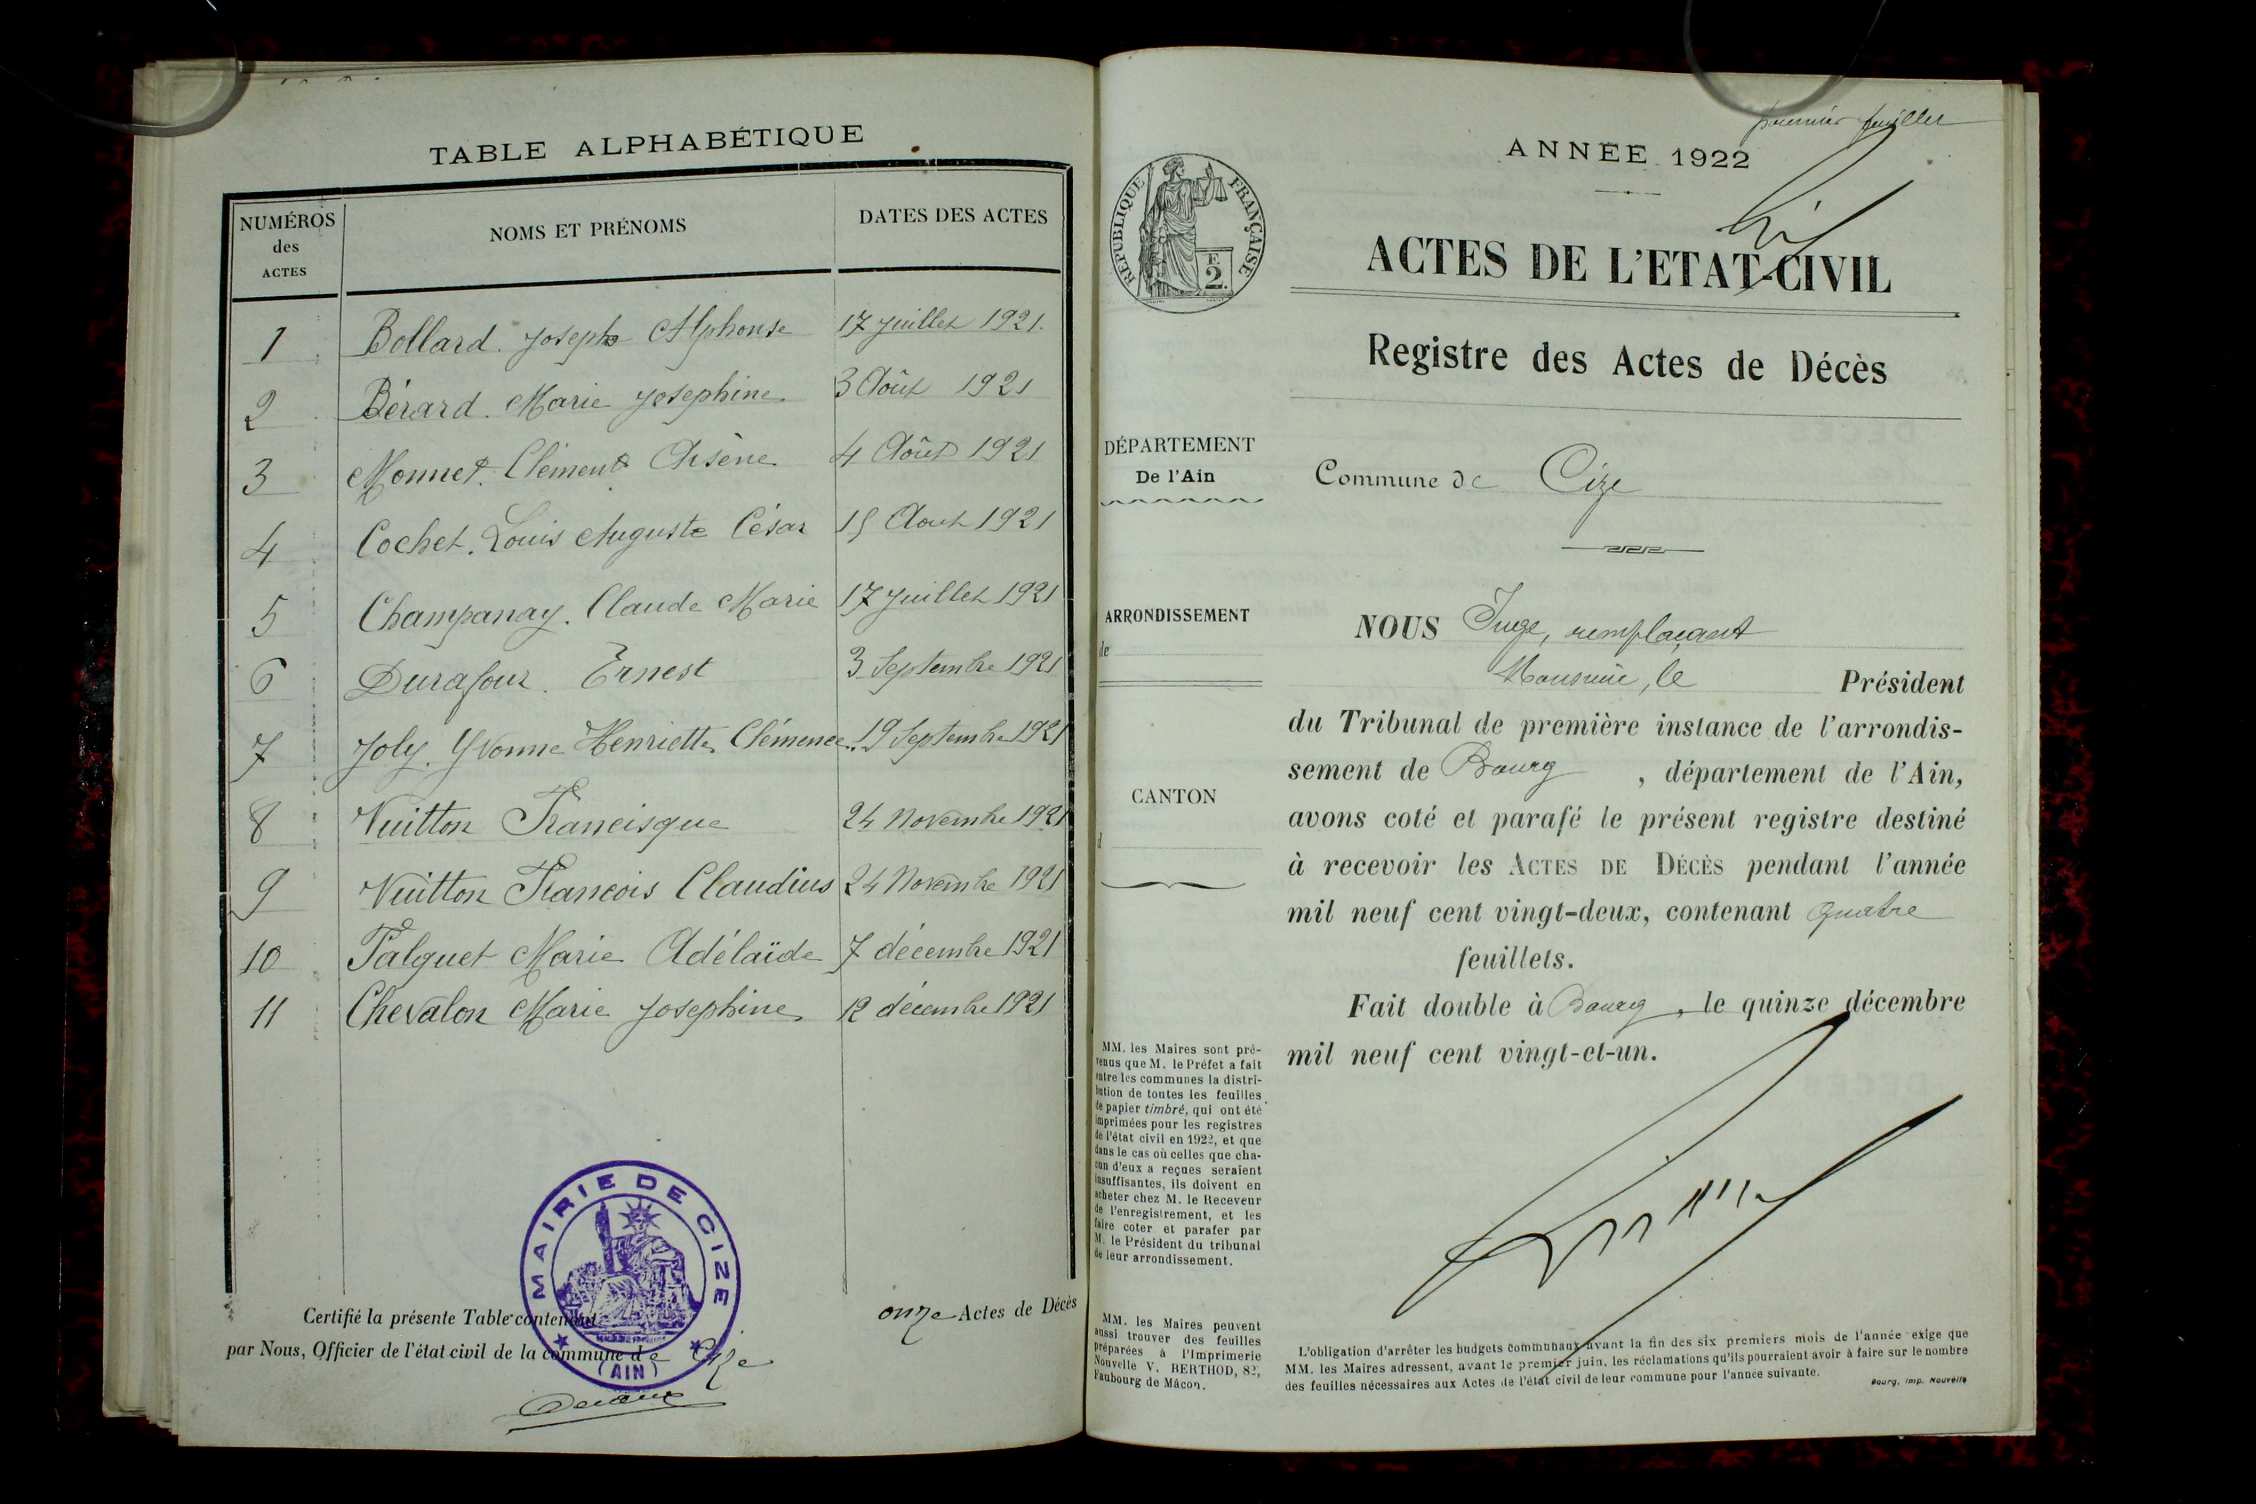 TABLE ALPHABÉTIQUE
NUMÉROS des ACTES
NOMS ET PRÉNOMS
DATES DES ACTES
1 Bollard Joseph Alphonse 17 Juillet 1921.
2 Bérard. Marie Josephine 3 Aôut 1921
3 Monnet. Clément Arsène 4 Aôut 1921
4 Cochet. Louis Auguste César 15 Aout 1921
5 Champanay. Claude Marie 17 Juillet 1921
6 Durafour. Ernest 3 Septembre 1921
7 Joly. Yvonne Henriette Clémence. 19 Septembre 1921
8 Vuitton Francisque 24 Novembre 1921
9 Vuitton Francois Claudius 24 Novembre 1921
10 Palguet Marie Adélaïde 7 décembre 1921
11 Chevalon Marie Josephine 12 décembre 1921
MAIRIE DE CIZE
(AIN)
Certifié la présente Table contenant onze Actes de Décès
par Nous, Officier de l'état civil de la commune de Cize
premier feuillet
ANNÉE 1922
RÉPUBLIQUE FRANÇAISE
E
2.
ACTES DE L'ETAT-CIVIL
Registre des Actes de Décès
DÉPARTEMENT
De l'Ain
Commune de Cize
ARRONDISSEMENT
de
CANTON
d
NOUS Juge, remplaçant
Monsieur, le Président
du Tribunal de première instance de l'arrondis-
sement de Bourg, département de l'Ain,
avons coté et parafé le présent registre destiné
à recevoir les ACTES DE DÉCÈS pendant l'année
mil neuf cent vingt-deux, contenant quatre
feuillets.
Fait double à Bourg, le quinze décembre
mil neuf cent vingt-et-un.
MM. les Maires sont pré-
venus que M. le Préfet a fait
entre les communes la distri-
bution de toutes les feuilles
de papier timbré, qui ont été
imprimées pour les registres
de l'état civil en 1922, et que
dans le cas où celles que cha-
cun d'eux a reçues seraient
insuffisantes, ils doivent en
acheter chez M. le Receveur
de l'enregistrement, et les
faire coter et parafer par
M. le Président du tribunal
de leur arrondissement.
MM. les Maires peuvent
aussi trouver des feuilles
préparées à l'Imprimerie
Nouvelle V. BERTHOD, 82,
Faubourg de Mâcon.
L'obligation d'arrêter les budgets communaux avant la fin des six premiers mois de l'année exige que
MM. les Maires adressent, avant le premier juin, les réclamations qu'ils pourraient avoir à faire sur le nombre
des feuilles nécessaires aux Actes de l'état civil de leur commune pour l'année suivante.
Bourg, Imp. Nouvelle